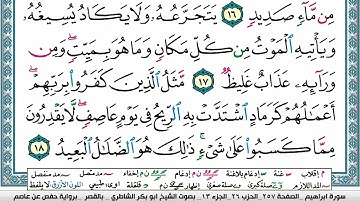 مِن مَّآءٍ صَدِيدٍ ١٦ يَتَجَرَّعُهُۥ وَلَا يَكَادُ يُسِيغُهُۥ
وَيَأْتِيهِ ٱلْمَوْتُ مِن كُلِّ مَكَانٍ وَمَا هُوَ بِمَيِّتٍ ۖ وَمِن
وَرَآئِهِۦ عَذَابٌ غَلِيظٌ ١٧ مَّثَلُ ٱلَّذِينَ كَفَرُوا۟ بِرَبِّهِمْ ۖ
أَعْمَٰلُهُمْ كَرَمَادٍ ٱشْتَدَّتْ بِهِ ٱلرِّيحُ فِى يَوْمٍ عَاصِفٍ ۖ لَّا يَقْدِرُونَ
مِمَّا كَسَبُوا۟ عَلَىٰ شَىْءٍ ۚ ذَٰلِكَ هُوَ ٱلضَّلَٰلُ ٱلْبَعِيدُ ١٨
سورة ابراهيم الصفحة ٢٥٧ الحزب ٢٦ الجزء ١٣ بصوت الشيخ ابو بكر الشاطري بالقصر برواية حفص عن عاصم